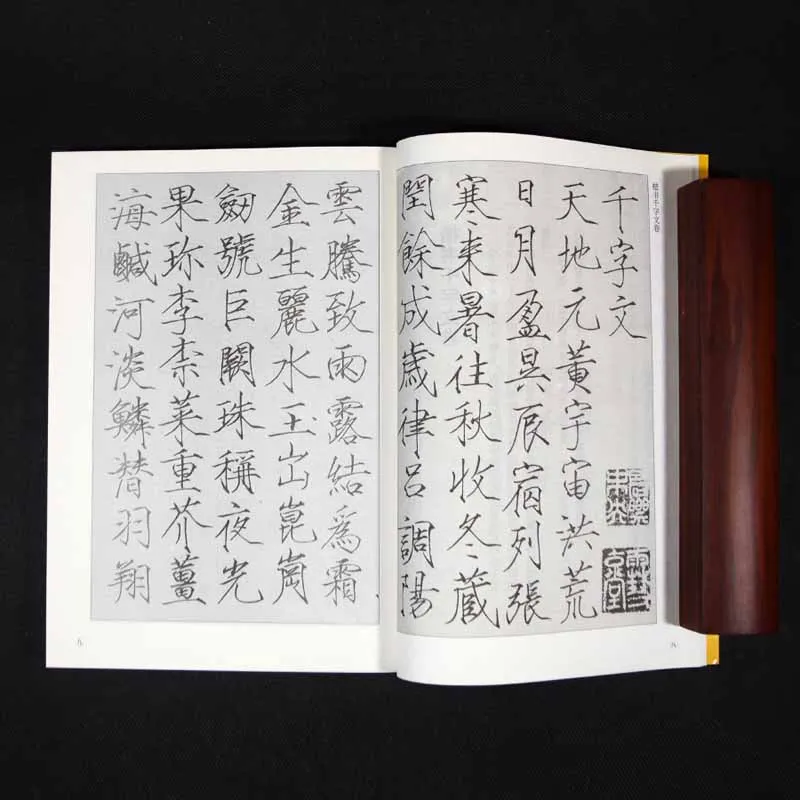 楷书千字文卷
千字文
天地元黃宇宙洪荒
日月盈昃辰宿列張
寒来暑往秋收冬藏
閏餘成歲律呂調陽
八
雲騰致雨露結爲霜
金生麗水玉出崑崗
劒號巨闕珠稱夜光
果珍李柰菜重芥薑
海鹹河淡鱗潛羽翔
九